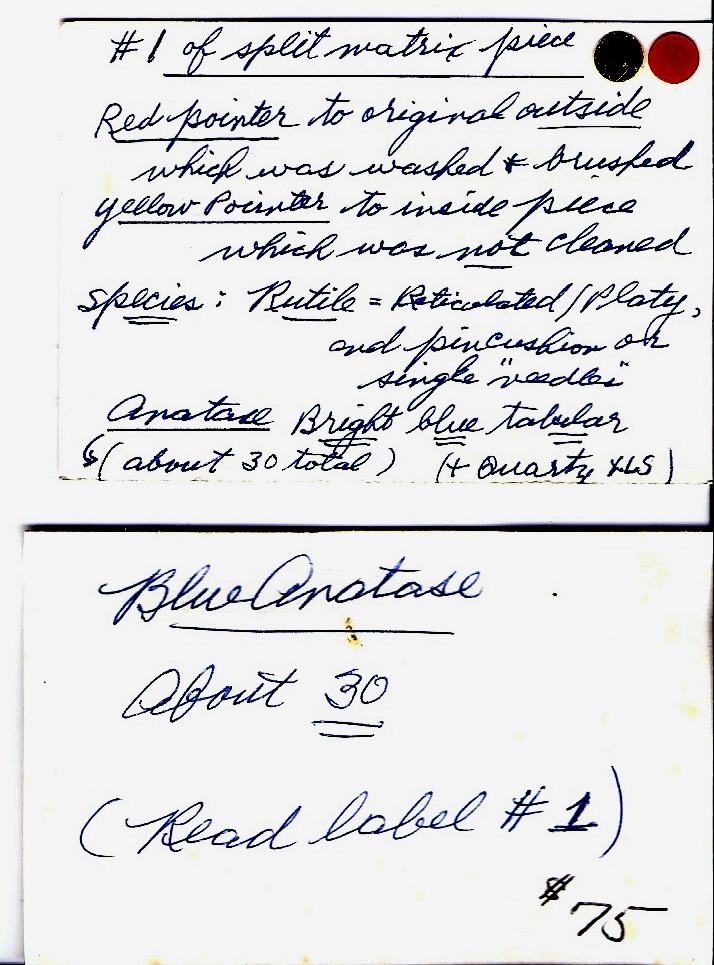 #1 of split matrix piece
Red pointer to original outside
which was washed & brushed
yellow Pointer to inside piece
which was not cleaned
Species: Rutile = Reticulated/Platy,
and pincushion or
single "needles"
Anatase Bright blue tabular
(about 30 total) (+ Quartz xLS)
Blue Anatase
About 30
(Read label #1)
$75